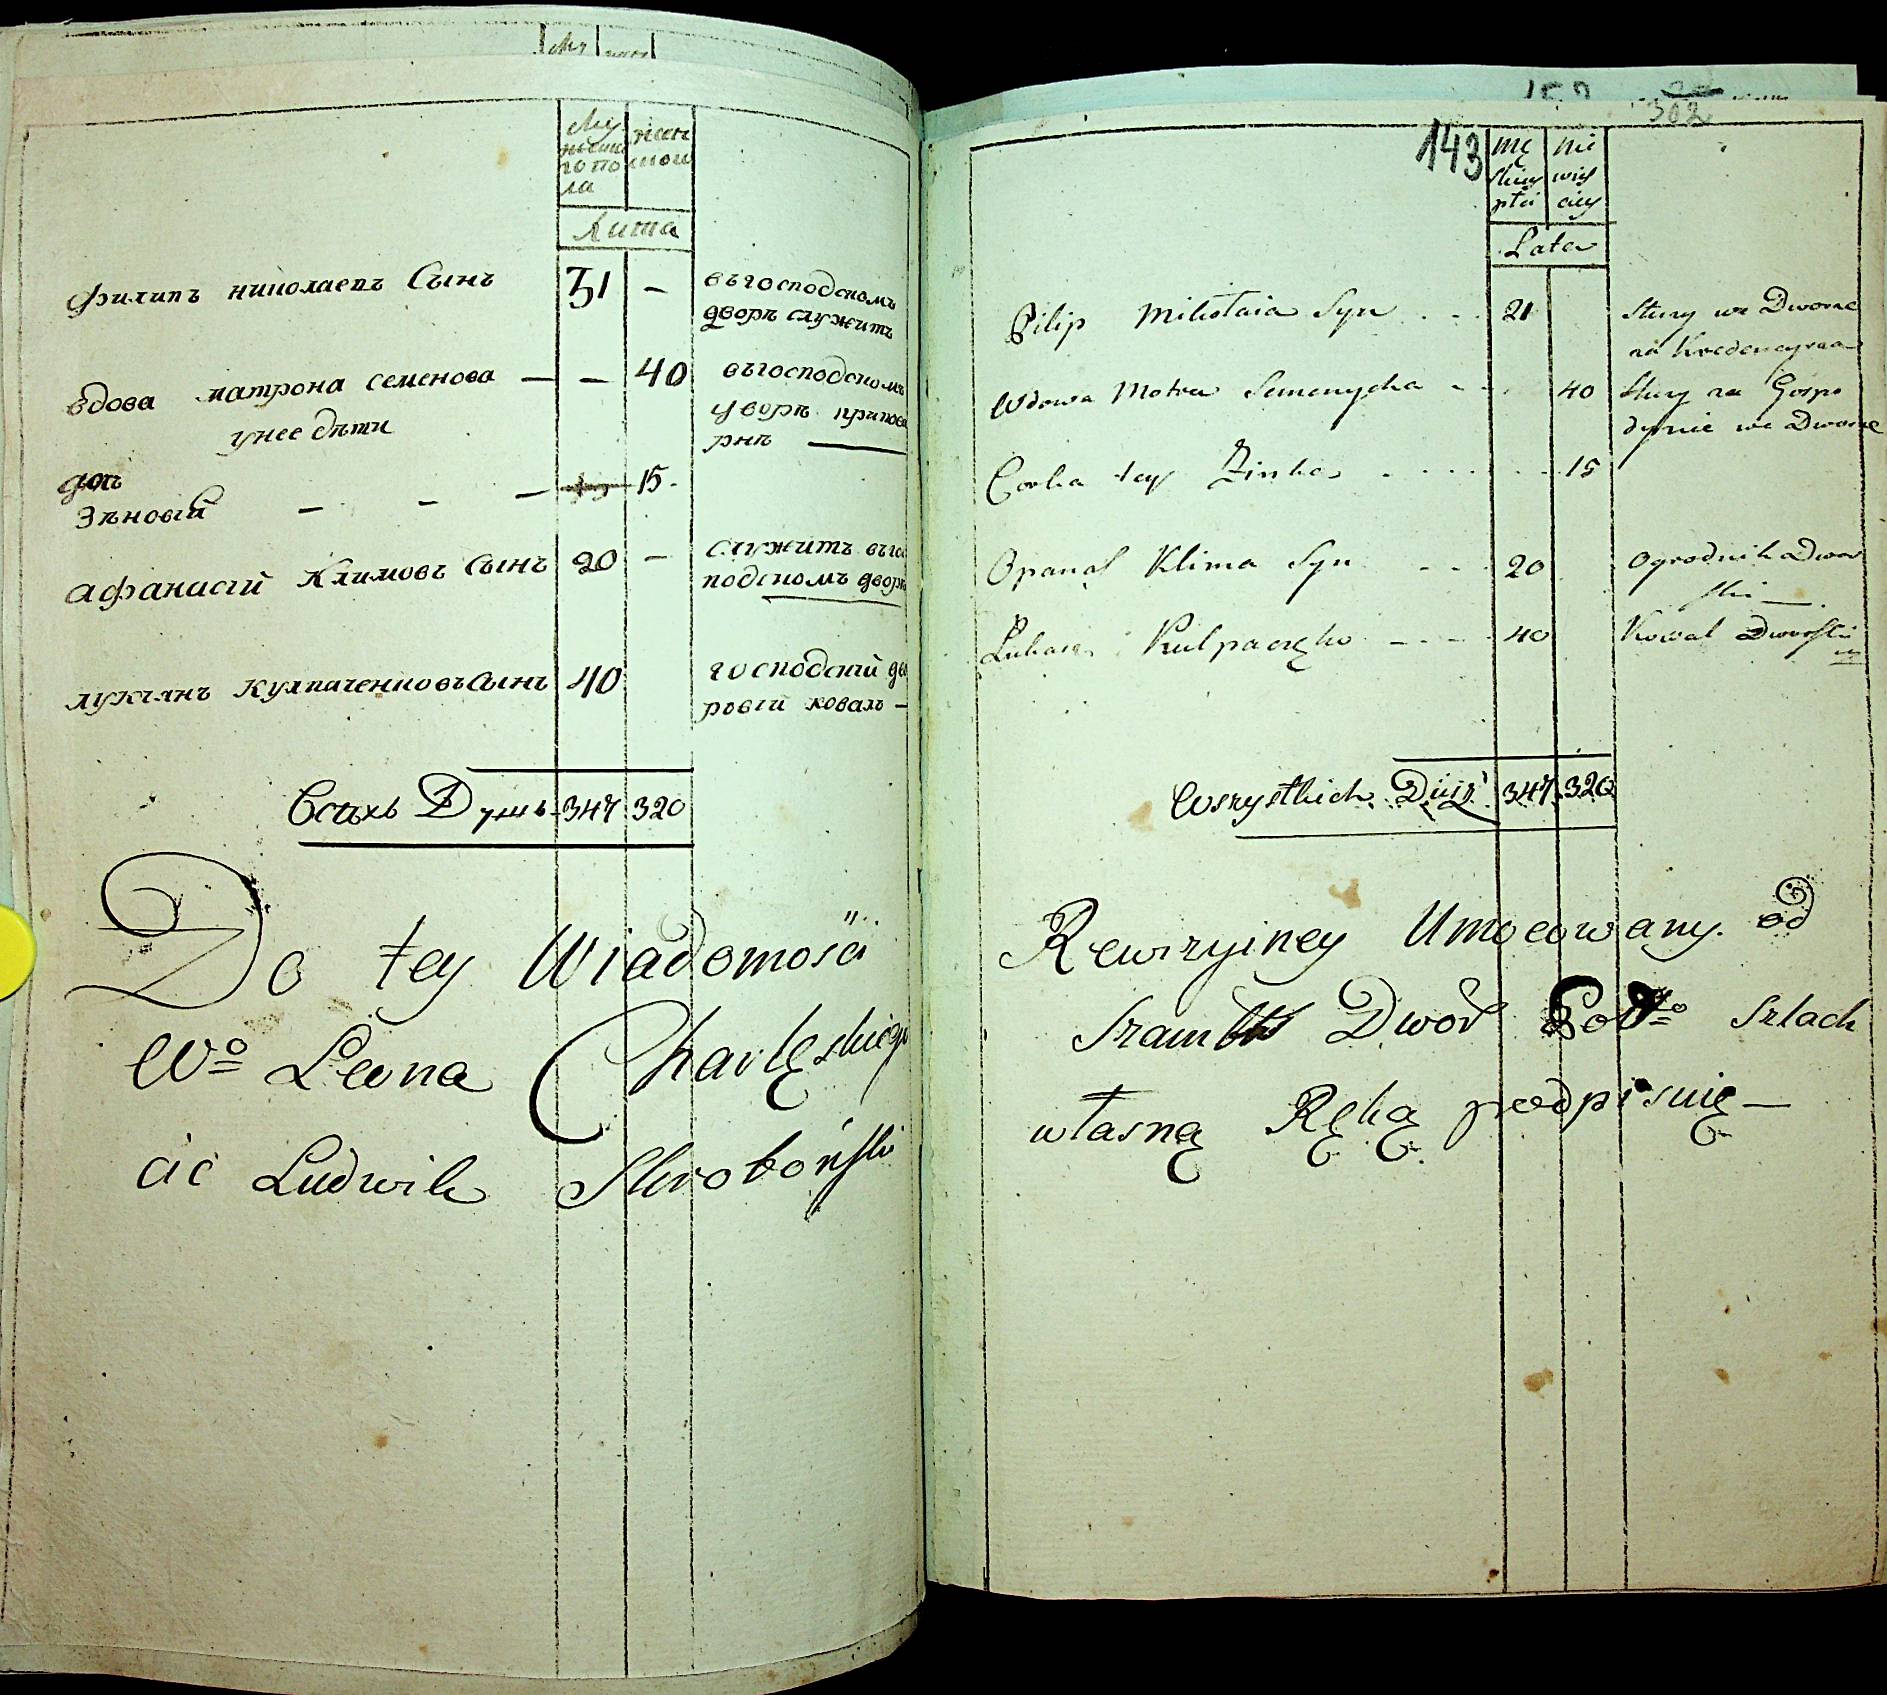 Мужеска го по ла
женской
Лита
филипъ николаевъ Сынъ 31 — въ господскомъ
дворѣ служитъ
вдова матрона семенова — — 40 въ господскомъ
унее дѣти
дочь
Зѣновій — — — 15.
афанасій Климовъ Сынъ 20 — служитъ въ гос
подскомъ дворѣ
лукъянъ кулпаченковъ Сынъ 40 господскій дво
ровій коваль —
Всѣхъ Душъ 347 320
Do tey Wiadomości
Wo Leona Charlęskiego
cic Ludwik Skroboński
143
302
mę skiey płci
nie wieś ciey
Lata
Filip Mikołaia Syn 21 Służy we Dworze
na Kredencyrza
Wdowa Motra Semenycha 40 Służy za Gospo
dynie we Dworze
Corka tey Zinka 15
Opanas Klima Syn 20 Ogrodnik Dwor
ski —
Łukasz Kulpaczęko 40 Kowal Dworski
Wszystkich Dusz 347 320
Rewizyiney Umocowany od
Dwor Szlach
własną Ręką podpisuię —